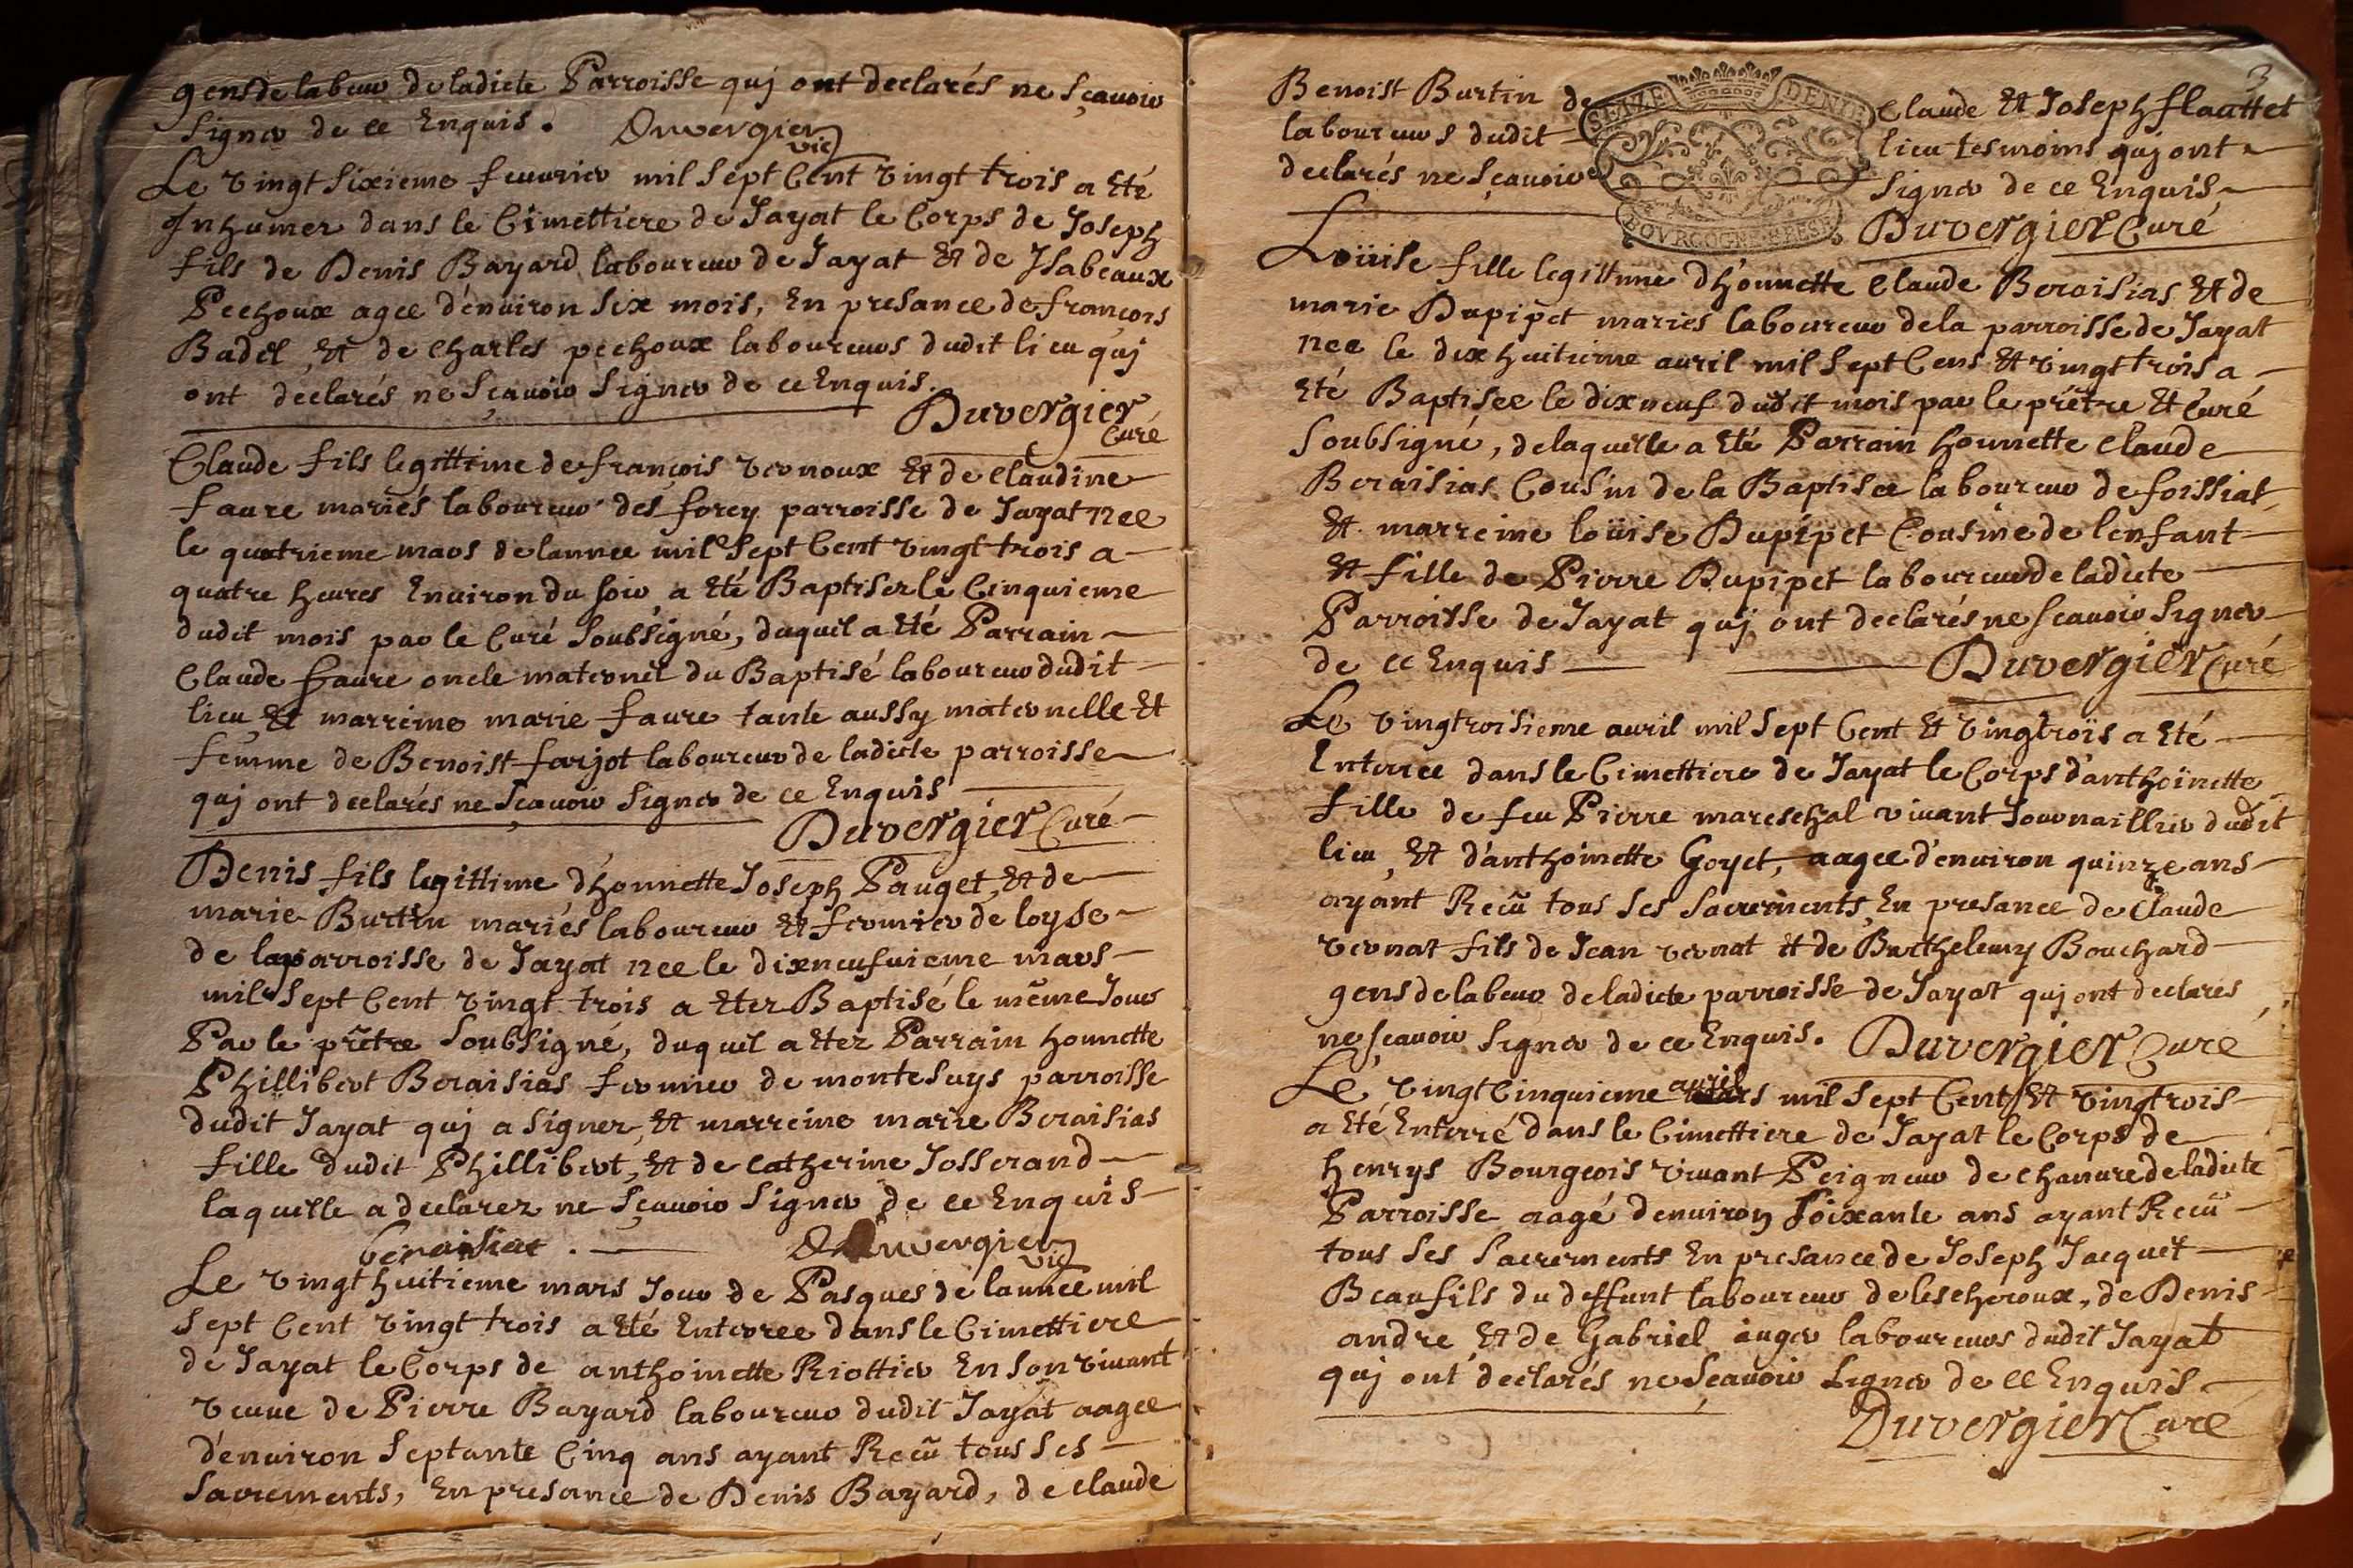 gens de labeur de ladicte Parroisse quj ont declarés ne sçavoir
signer de ce Enquis. Duvergier
vic
Le vingt sixieme feuvrier mil sept Cent vingt trois a Eté
Inhumer dans le Cimettiere de Jayat le Corps de Joseph
fils de Denis Bayard laboureur de Jayat Et de Isabeaux
Pechoux agee d'enuiron six mois, En presance de françois
Badel, Et de Charles pechoux laboureurs dudit lieu quj
ont declarés ne Sçauoir Signer de ce Enquis.
Duvergier
Curé
Claude fils legittime de françois vernoux Et de Claudine
faure mariés laboureur des forey parroisse de Jayat nee
le quatrieme mars de lannee mil Sept Cent vingt trois a
quatre heures Enuiron du soir a Eté Baptiser le Cinquieme
dudit mois par le Curé Soubsigné, duquil a Eté Parrain
Claude faure oncle maternel du Baptisé laboureur dudit
lieu Et marreine marie faure tante aussy maternelle Et
femme de Benoist farjot laboureur de ladicte parroisse
quj ont declarés ne Sçauoir Signer de ce Enquis
Duvergier Curé
Denis fils legittime d'honnette Joseph Pauget, Et de
marie Burtin mariés laboureur Et fermier de loyse
de la parroisse de Jayat nee le dixneufuieme mars
mil Sept Cent vingt trois a Eter Baptisé le même Jour
Par le prêtre Soubsigné, duquil a Etez Parrain honnette
Phillibert Beraisias fermier de montesuys parroisse
dudit Jayat quj a signer, Et marreine marie Beraisias
fille dudit Phillibert, Et de Catherine Josserand
laquelle a declarez ne Sçauoir Signer de ce Enquis
beraisiat . Duvergier
vic
Le vingt huitieme mars Jour de Pasques de lannee mil
Sept Cent vingt trois a Eté Enterree dans le Cimettiere
de Jayat le Corps de anthoinette Riottier En son viuant
veuue de Pierre Bayard laboureur dudit Jayat aagee
d'enuiron Septante Cinq ans ayant Reçu tous Ses
Sacrements, En presance de Denis Bayard, de claude
3
Benoist Burtin de Claude Et Joseph flauttet
laboureurs dudit lieu tesmoins quj ont
declarés ne Sçauoir Signer de ce Enquis
SEIZE DENIE
BOVRGOGNE BRESSE
Duvergier Curé
Loüise fille legittime d'honnette Claude Beraisias Et de
marie Dupipet mariés laboureur de la parroisse de Jayat
nee le dix huitieme auril mil Sept Cens Et vingt trois a
Eté Baptisee le dixneuf dudit mois par le prêtre Et Curé
Soubsigné, delaquelle a Eté Parrain honnette Claude
Beraisias Cousin de la Baptisee laboureur de foissiat
Et marreine loüise Dupipet Cousine de l'enfant
Et fille de Pierre Dupipet laboureur de ladicte
Parroisse de Jayat quj ont declarés ne sçauoir Signer
de ce Enquis Duvergier Curé
Le vingtroisieme auril mil Sept Cent Et vingtroïs a Eté
Enterree dans le Cimettiere de Jayat le Corps d'anthoinette
fille de feu Pierre mareschal viuant Journaillier dudit
lieu, Et d'anthoinette Goyet, aagee d'enuiron quinze ans
ayant Reçu tous Ses Sacrements En presance de Claude
vernat fils de Jean vernat Et de Barthelemy Bouchard
gens de labeur de ladicte parroisse de Jayat quj ont declarés
ne sçauoir Signer de ce Enquis. Duvergier Curé
auril
Le vingt Cinquieme mil Sept Cent Et vingtrois
a Eté Enterré dans le Cimettiere de Jayat le Corps de
henrys Bourgeois viuant Peigneur de chanure de ladicte
Parroisse aagé denuiron Soixante ans ayant Reçu
tous Ses Sacrements En presance de Joseph Jacquet
Beaufils du deffunt laboureur de lescheroux, de Denis
andre Et de Gabriel auger laboureurs dudit Jayat
quj ont declarés ne Sçauoir Signer de ce Enquis
Duvergier Curé